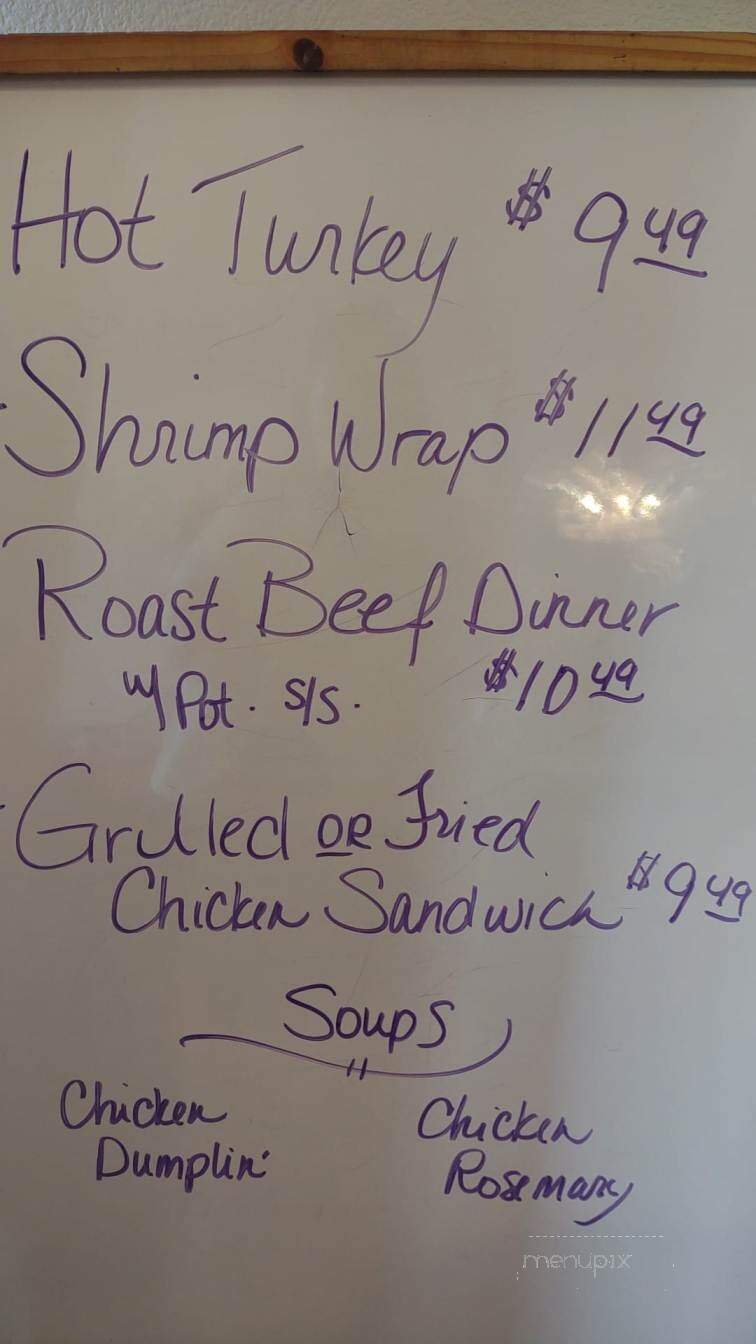 Hot Turkey $ 9 49
Shrimp Wrap $ 11 49
Roast Beef Dinner
w/ Pot. S/S. $ 10 49
Grilled OR Fried
Chicken Sandwich $ 9 49
Soups
Chicken Chicken
Dumplin' Rosemary
menupix